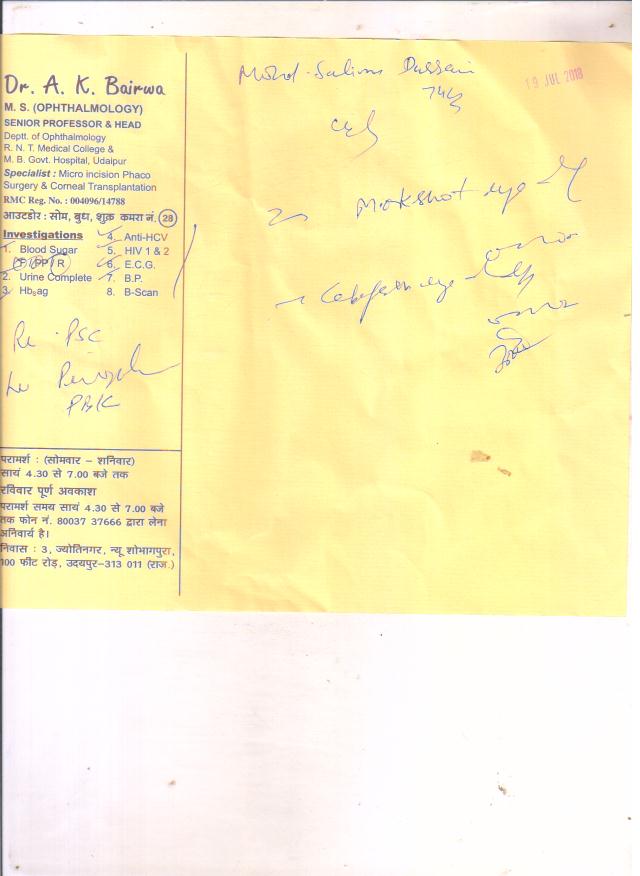 Dr. A. K. Bairwa
M. S. (OPHTHALMOLOGY)
SENIOR PROFESSOR & HEAD
Deptt. of Ophthalmology
R. N. T. Medical College &
M. B. Govt. Hospital, Udaipur
Specialist : Micro incision Phaco
Surgery & Corneal Transplantation
RMC Reg. No. : 004096/14788
आउटडोर : सोम, बुध, शुक्र कमरा नं. 28
Investigations
1. Blood Sugar
F PP R
2. Urine Complete
3. HbsAg
4. Anti-HCV
5. HIV 1 & 2
6. E.C.G.
7. B.P.
8. B-Scan
Re PSC
PBK
परामर्श : (सोमवार – शनिवार)
सायं 4.30 से 7.00 बजे तक
रविवार पूर्ण अवकाश
परामर्श समय सायं 4.30 से 7.00 बजे
तक फोन नं. 80037 37666 द्वारा लेना
अनिवार्य है।
निवास : 3, ज्योतिनगर, न्यू शोभागपुरा,
100 फीट रोड़, उदयपुर–313 011 (राज.)
Mohd. Salim
19 JUL 2018
eye
eye